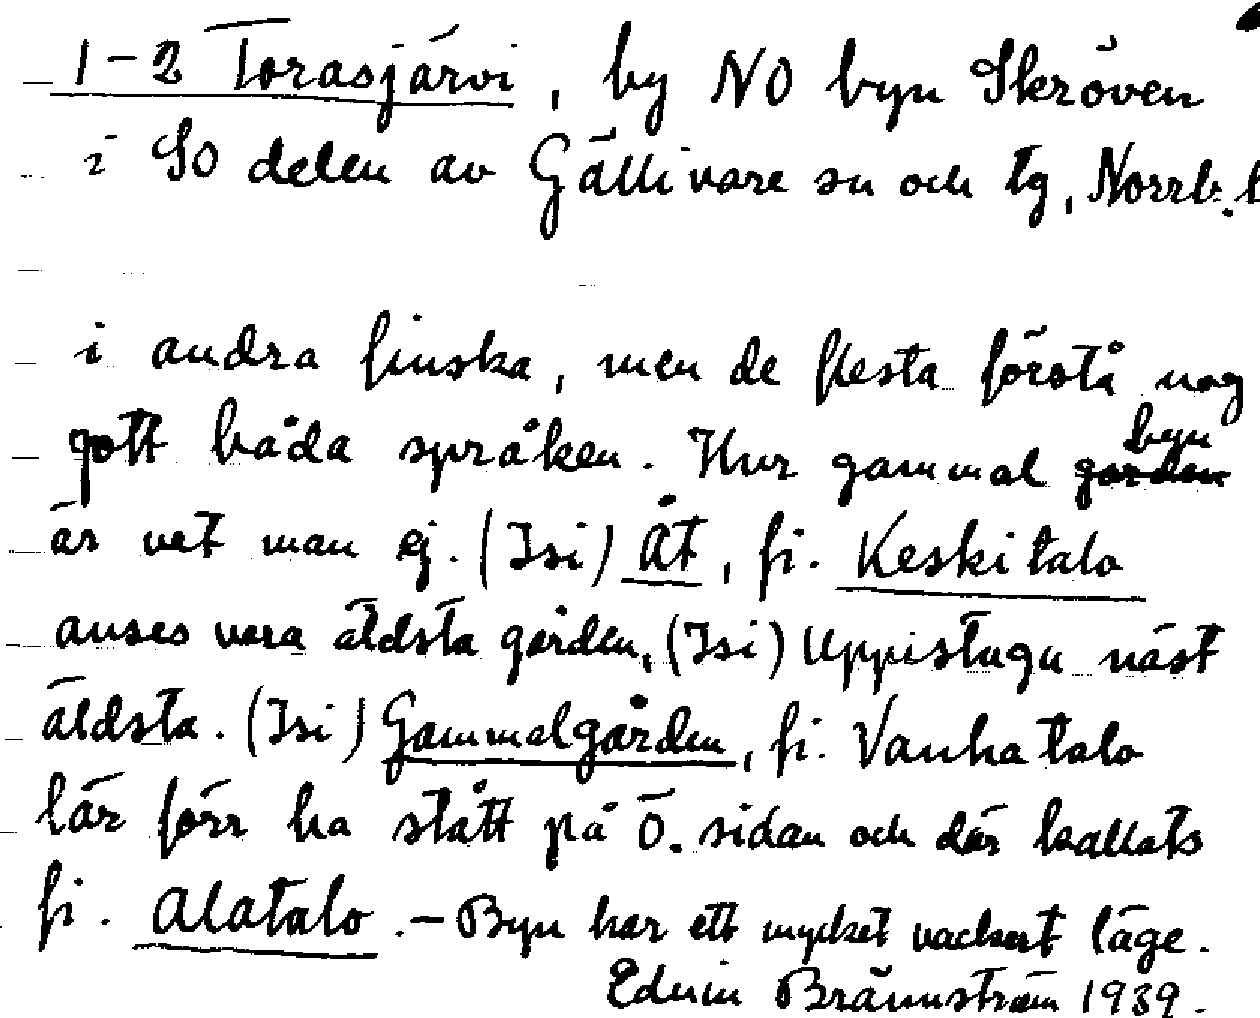 1-2 Torasjärvi, by NO byn Skröven
i SO delen av Gällivare sn och tg, Norrb. l
i andra finska, men de flesta förstå nog
gott båda språken. Hur gammal byn
är vet man ej. (Isi) Åt, fi. Keskitalo
anses vara äldsta gården, (Isi) Uppistugu näst
äldsta. (Isi) Gammelgården, fi. Vanhatalo
lär förr ha stått på Ö. sidan och där kallats
fi. Alatalo. – Byn har ett mycket vackert läge.
Edvin Brännström 1939.